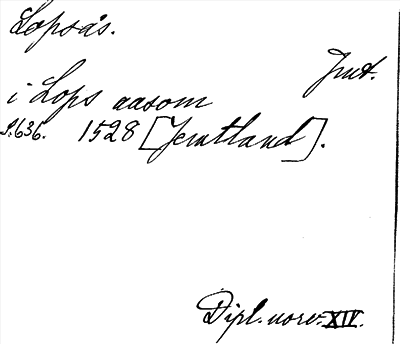 Lopsås.
Jmt.
i Lops aasom
S.636. 1528 [Jemtland].
Dipl. norv. XIV.